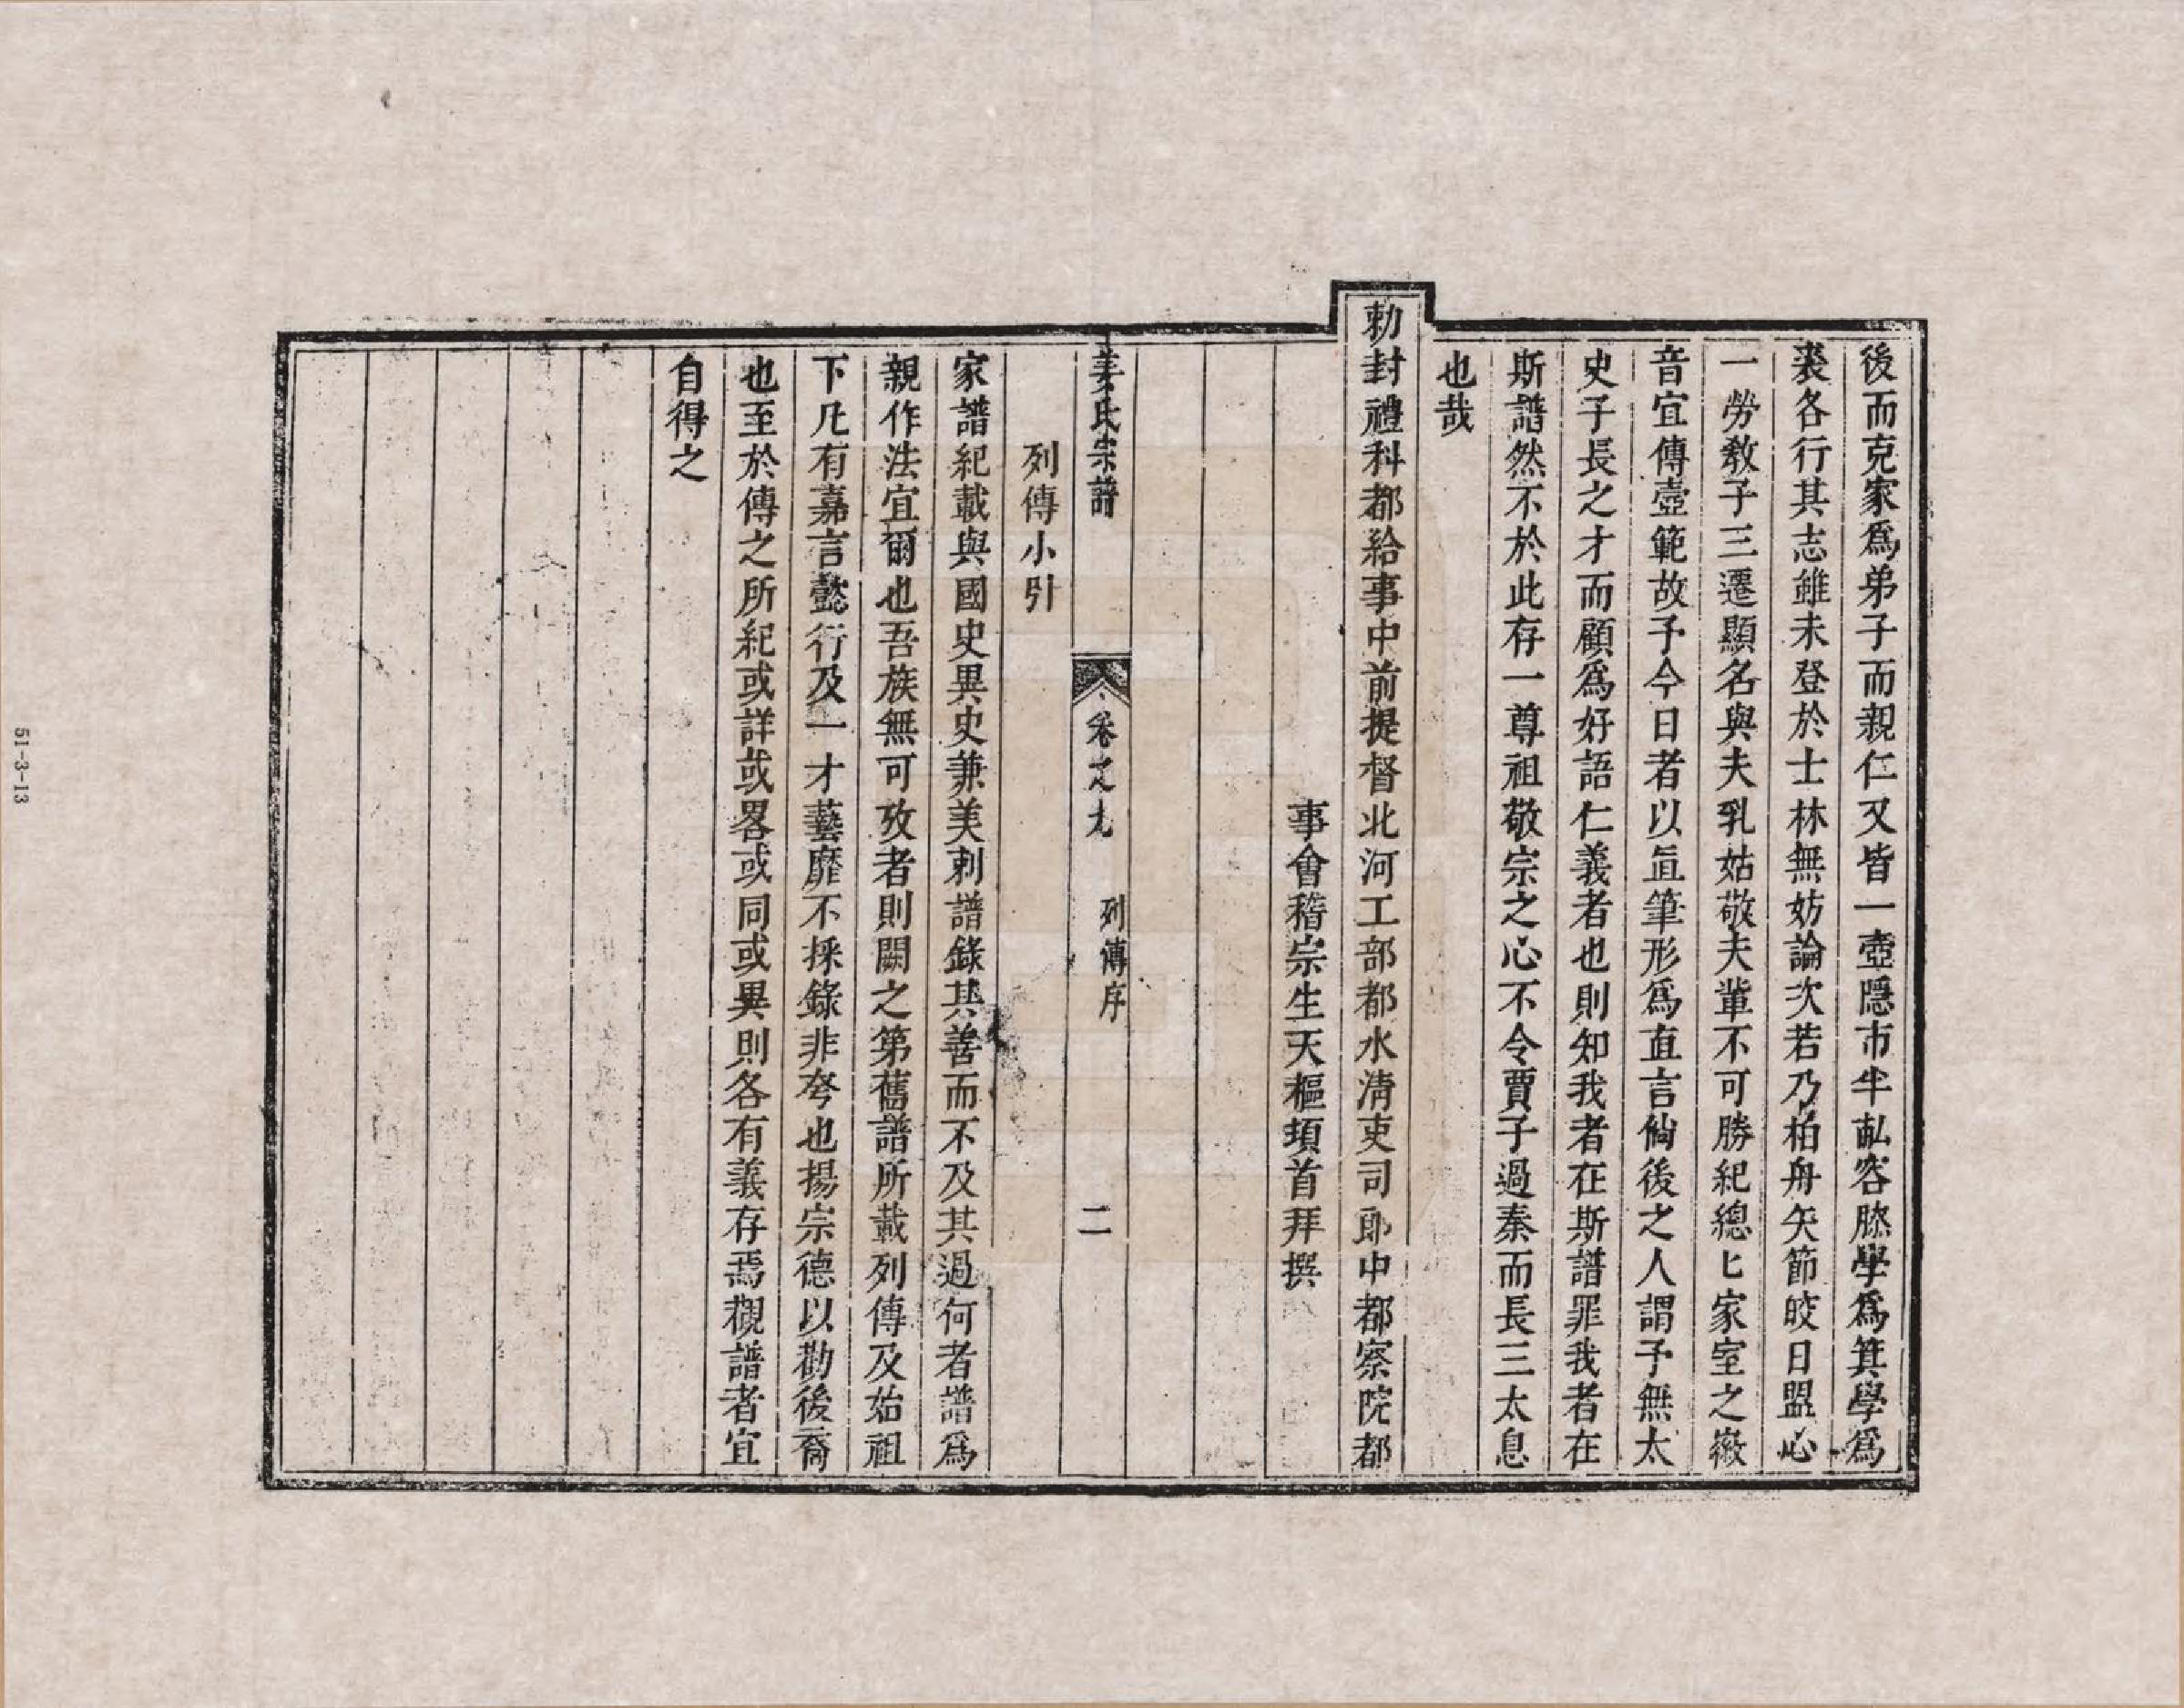 後而克家爲弟子而親仁又皆一壺隱市半畝容膝學爲箕學爲
裘各行其志雖未登於士林無妨論次若乃柏舟矢節皎日盟心
一勞教子三遷顯名與夫乳姑敬夫夫輩不可勝紀總匕家室之徽
音宜傳壼範故予今日者以直筆形爲直言倘後之人謂予無太
史子長之才而顧爲好語仁義者也則知我者在斯譜罪我者在
斯譜然不於此存一尊祖敬宗之心不令賈子過秦而長三太息
也哉
勅封禮科都給事中前提督北河工部都水清吏司郎中都察院都
事會稽宗生天樞頊首拜撰
姜氏宗譜
卷之九
列傳序
二
列傳小引
家譜紀載與國史異史兼美刺譜錄其善而不及其過何者譜爲
親作法宜爾也吾族無可攷者則闕之第舊譜所載列傳及始祖
下凡有嘉言懿行及一才藝靡不採錄非夸也揚宗德以勸後裔
也至於傳之所紀或詳或畧或同或異則各有義存焉觀譜者宜
自得之
51-3-13